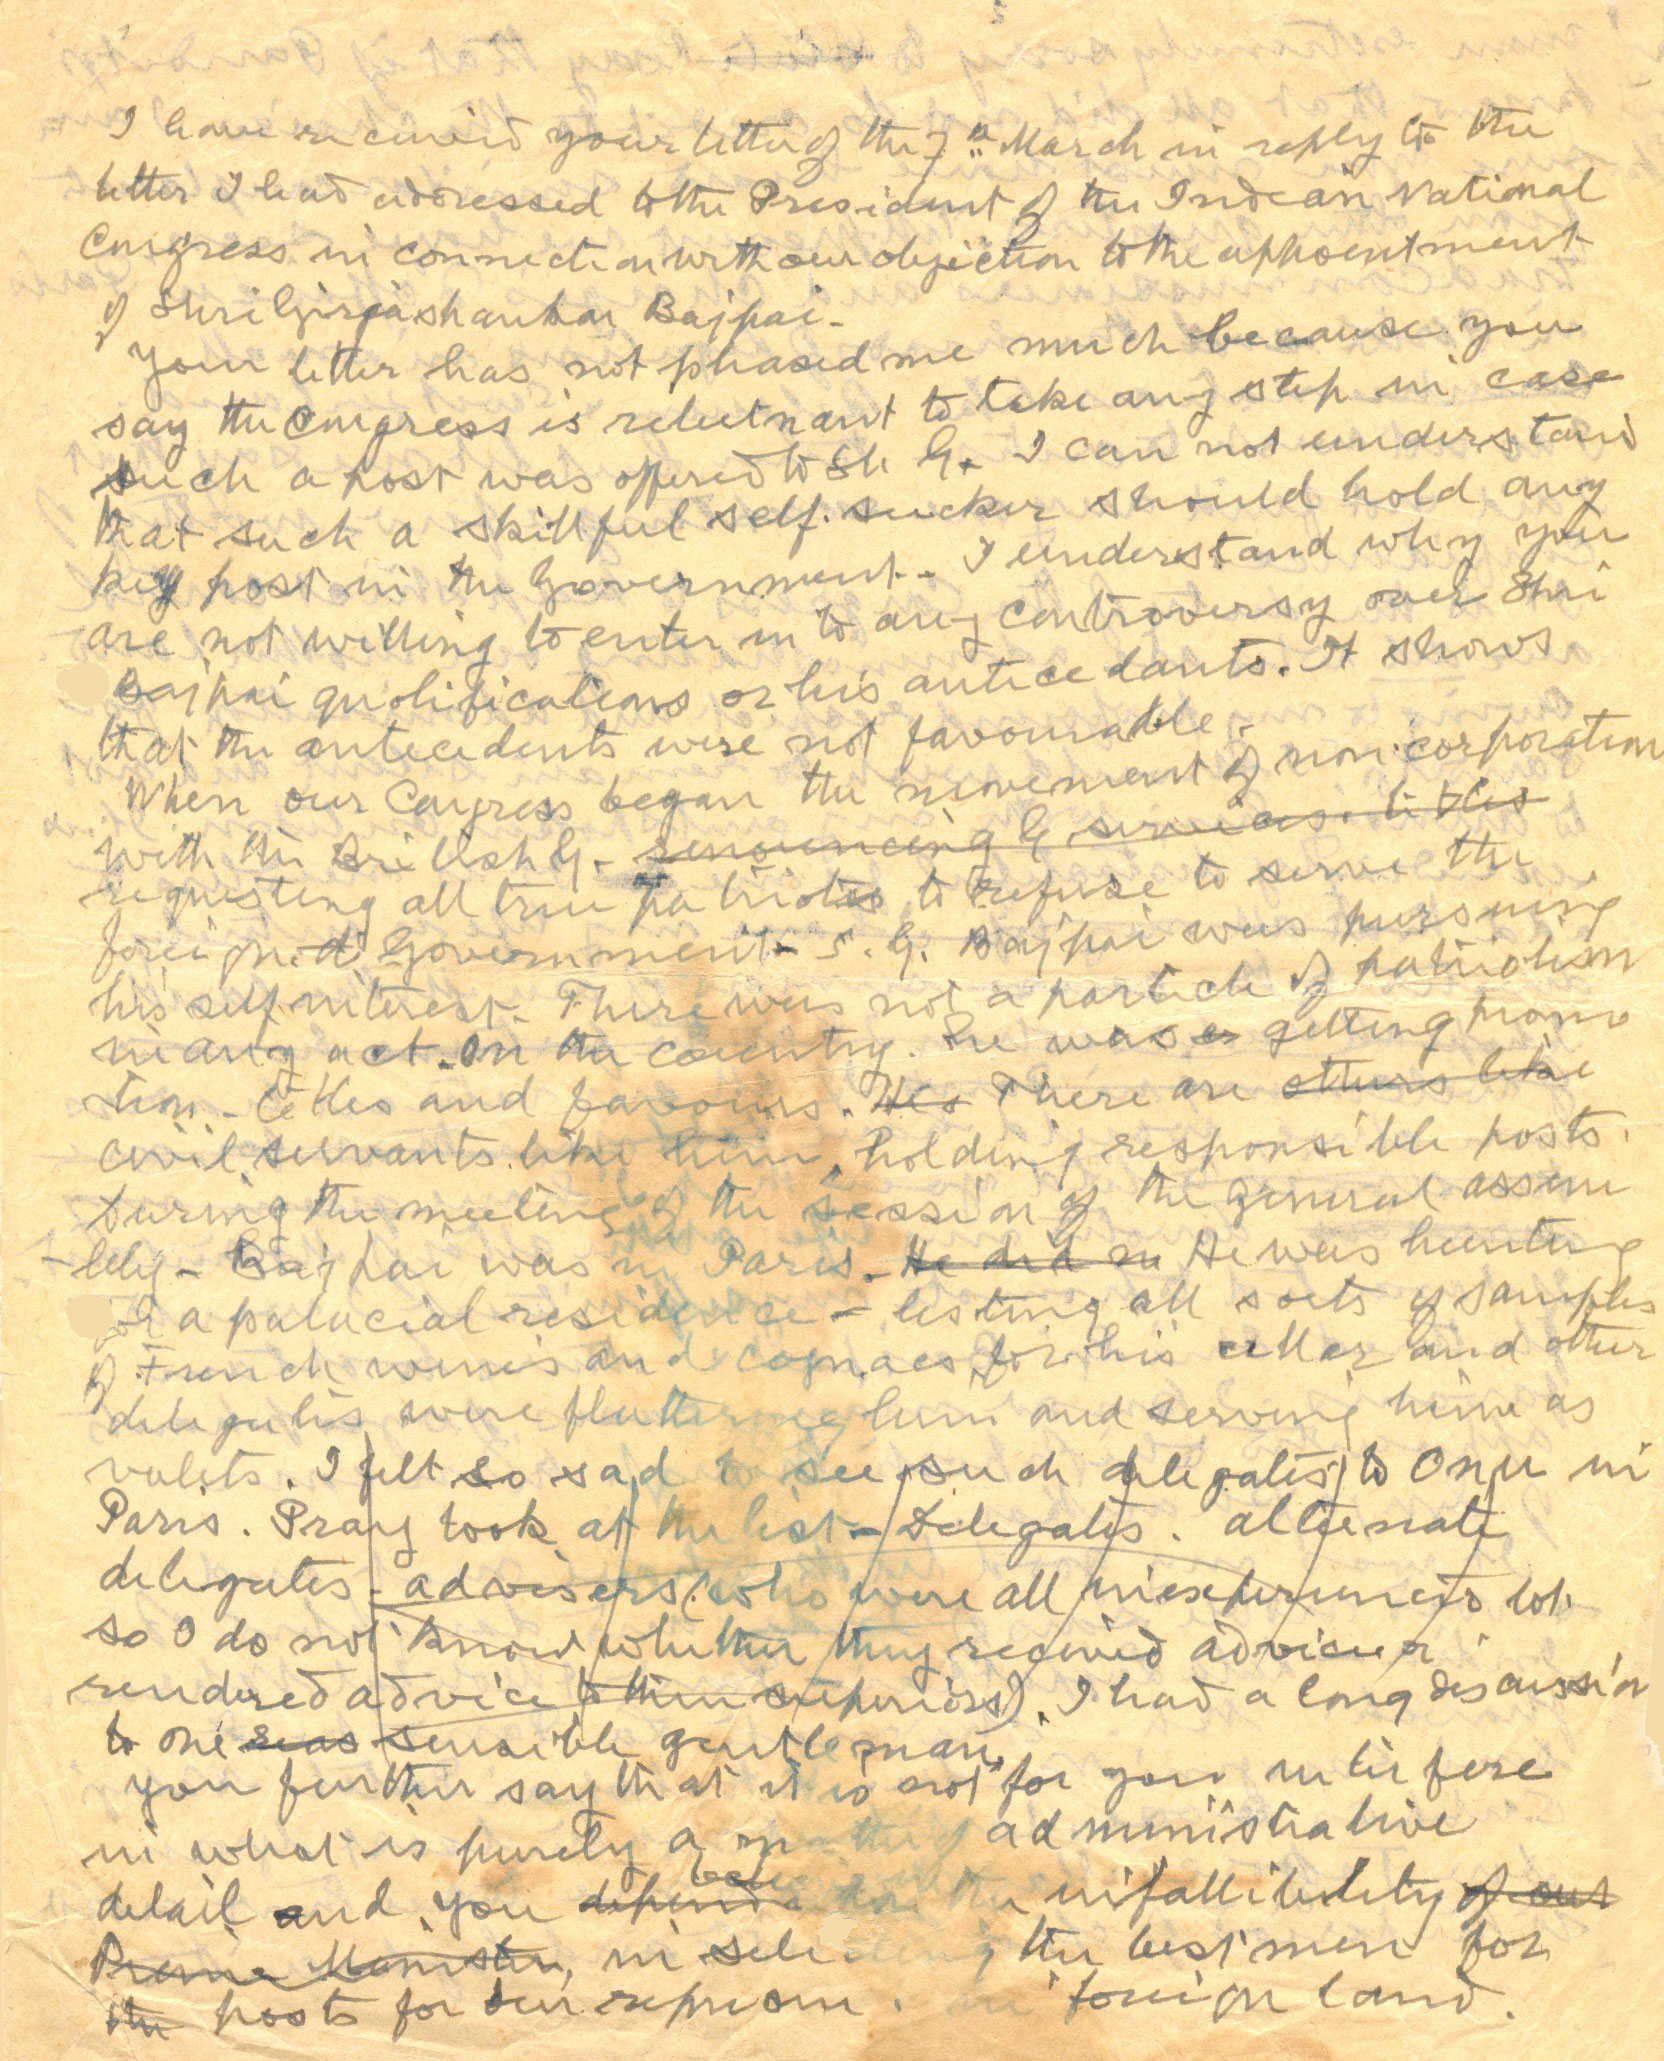 I have received your letter of the 7th March in reply to the
letter I had addressed to the President of the Indean National
Congress in connection with our objection to the appointment
of Shri Girjashankar Bajpai.
Your letter has not pleased me much because you
say the Congress is reluctnant to take any step in case
such a post was offered to Sh G. I can not understand
that such a skillful self. seeker should hold any
key post in the Government. I understand why you
are not willing to enter in to any controversy over Shri
Bajpai qualifications or his anticedants. It shows
that the antecedents were not favourable.
When our Congress began the movement of non.corporation
with the British G. renouncing G services. titles
requesting all true patriots to refuse to serve the
foreign. d Government - S. G. Bajpai was pursuing
his self interest. There was not a particle of patriotism
in any act. On the country. he was getting promo
tion - titles and favours. He There are others like
civil servants like him, holding responsible posts.
During the meeting of the session of the general assem
-bly - Bajpai was in Paris. He did He was hunting
for a palacial residence - testing all sorts of samples
of French wines and cognacs for his cellar and other
delegates were fluttering him and serving him as
valets. I felt so sad to see such delegates to Onu in
Paris. Pray took at the list - Delegates. alternate
delegates - advisers (who were all inexperienced lot
so I do not know whether they received advice or
rendered advice to their superiors). I had a long discussion
to one sensible gentleman.
You further say that it is not for you interfere
in what is purely a matter of administrative
detail and you depend the infallibility of our
Prime Minister, in selecting the best men for
the posts for our represen. in foreign land.